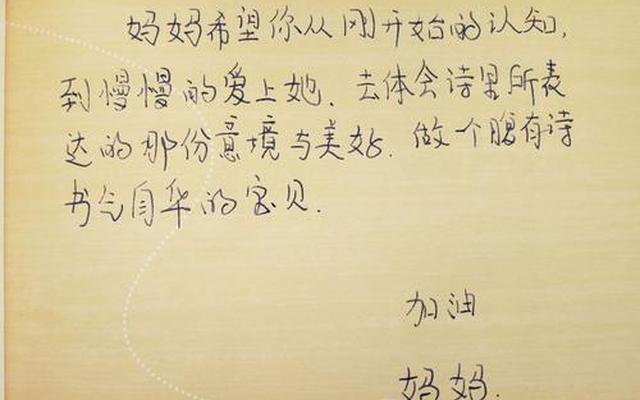 妈妈希望你从刚开始的认知,
到慢慢的爱上她.去体会诗里所表
达的那份意境与美好.做一个腹有诗
书气自华的宝贝.
加油
妈妈.